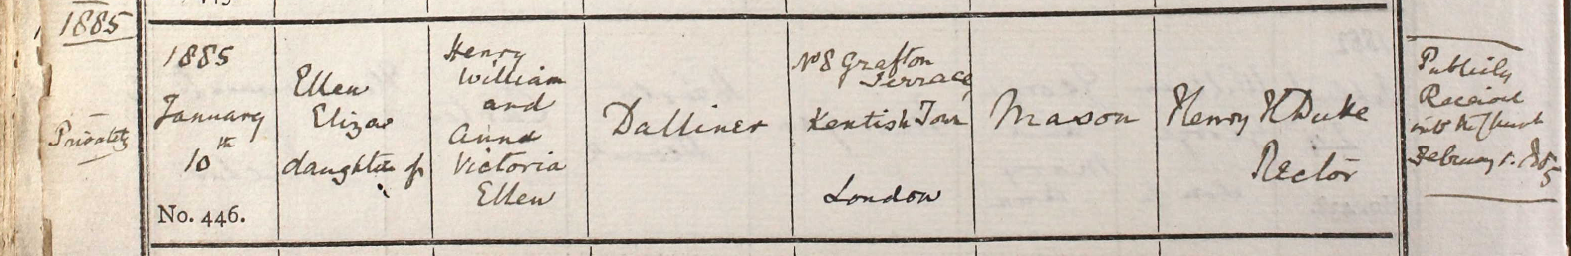 1885
Privately
1885
January
10th
No. 446.
Ellen
Eliza
daughter of
Henry
William
and
Anna
Victoria
Ellen
Dalliner
No 8 Grafton
Terrace
Kentish Town
London
Mason
Henry H Duke
Rector
Publicly
Received
into the Church
February 1. 1885